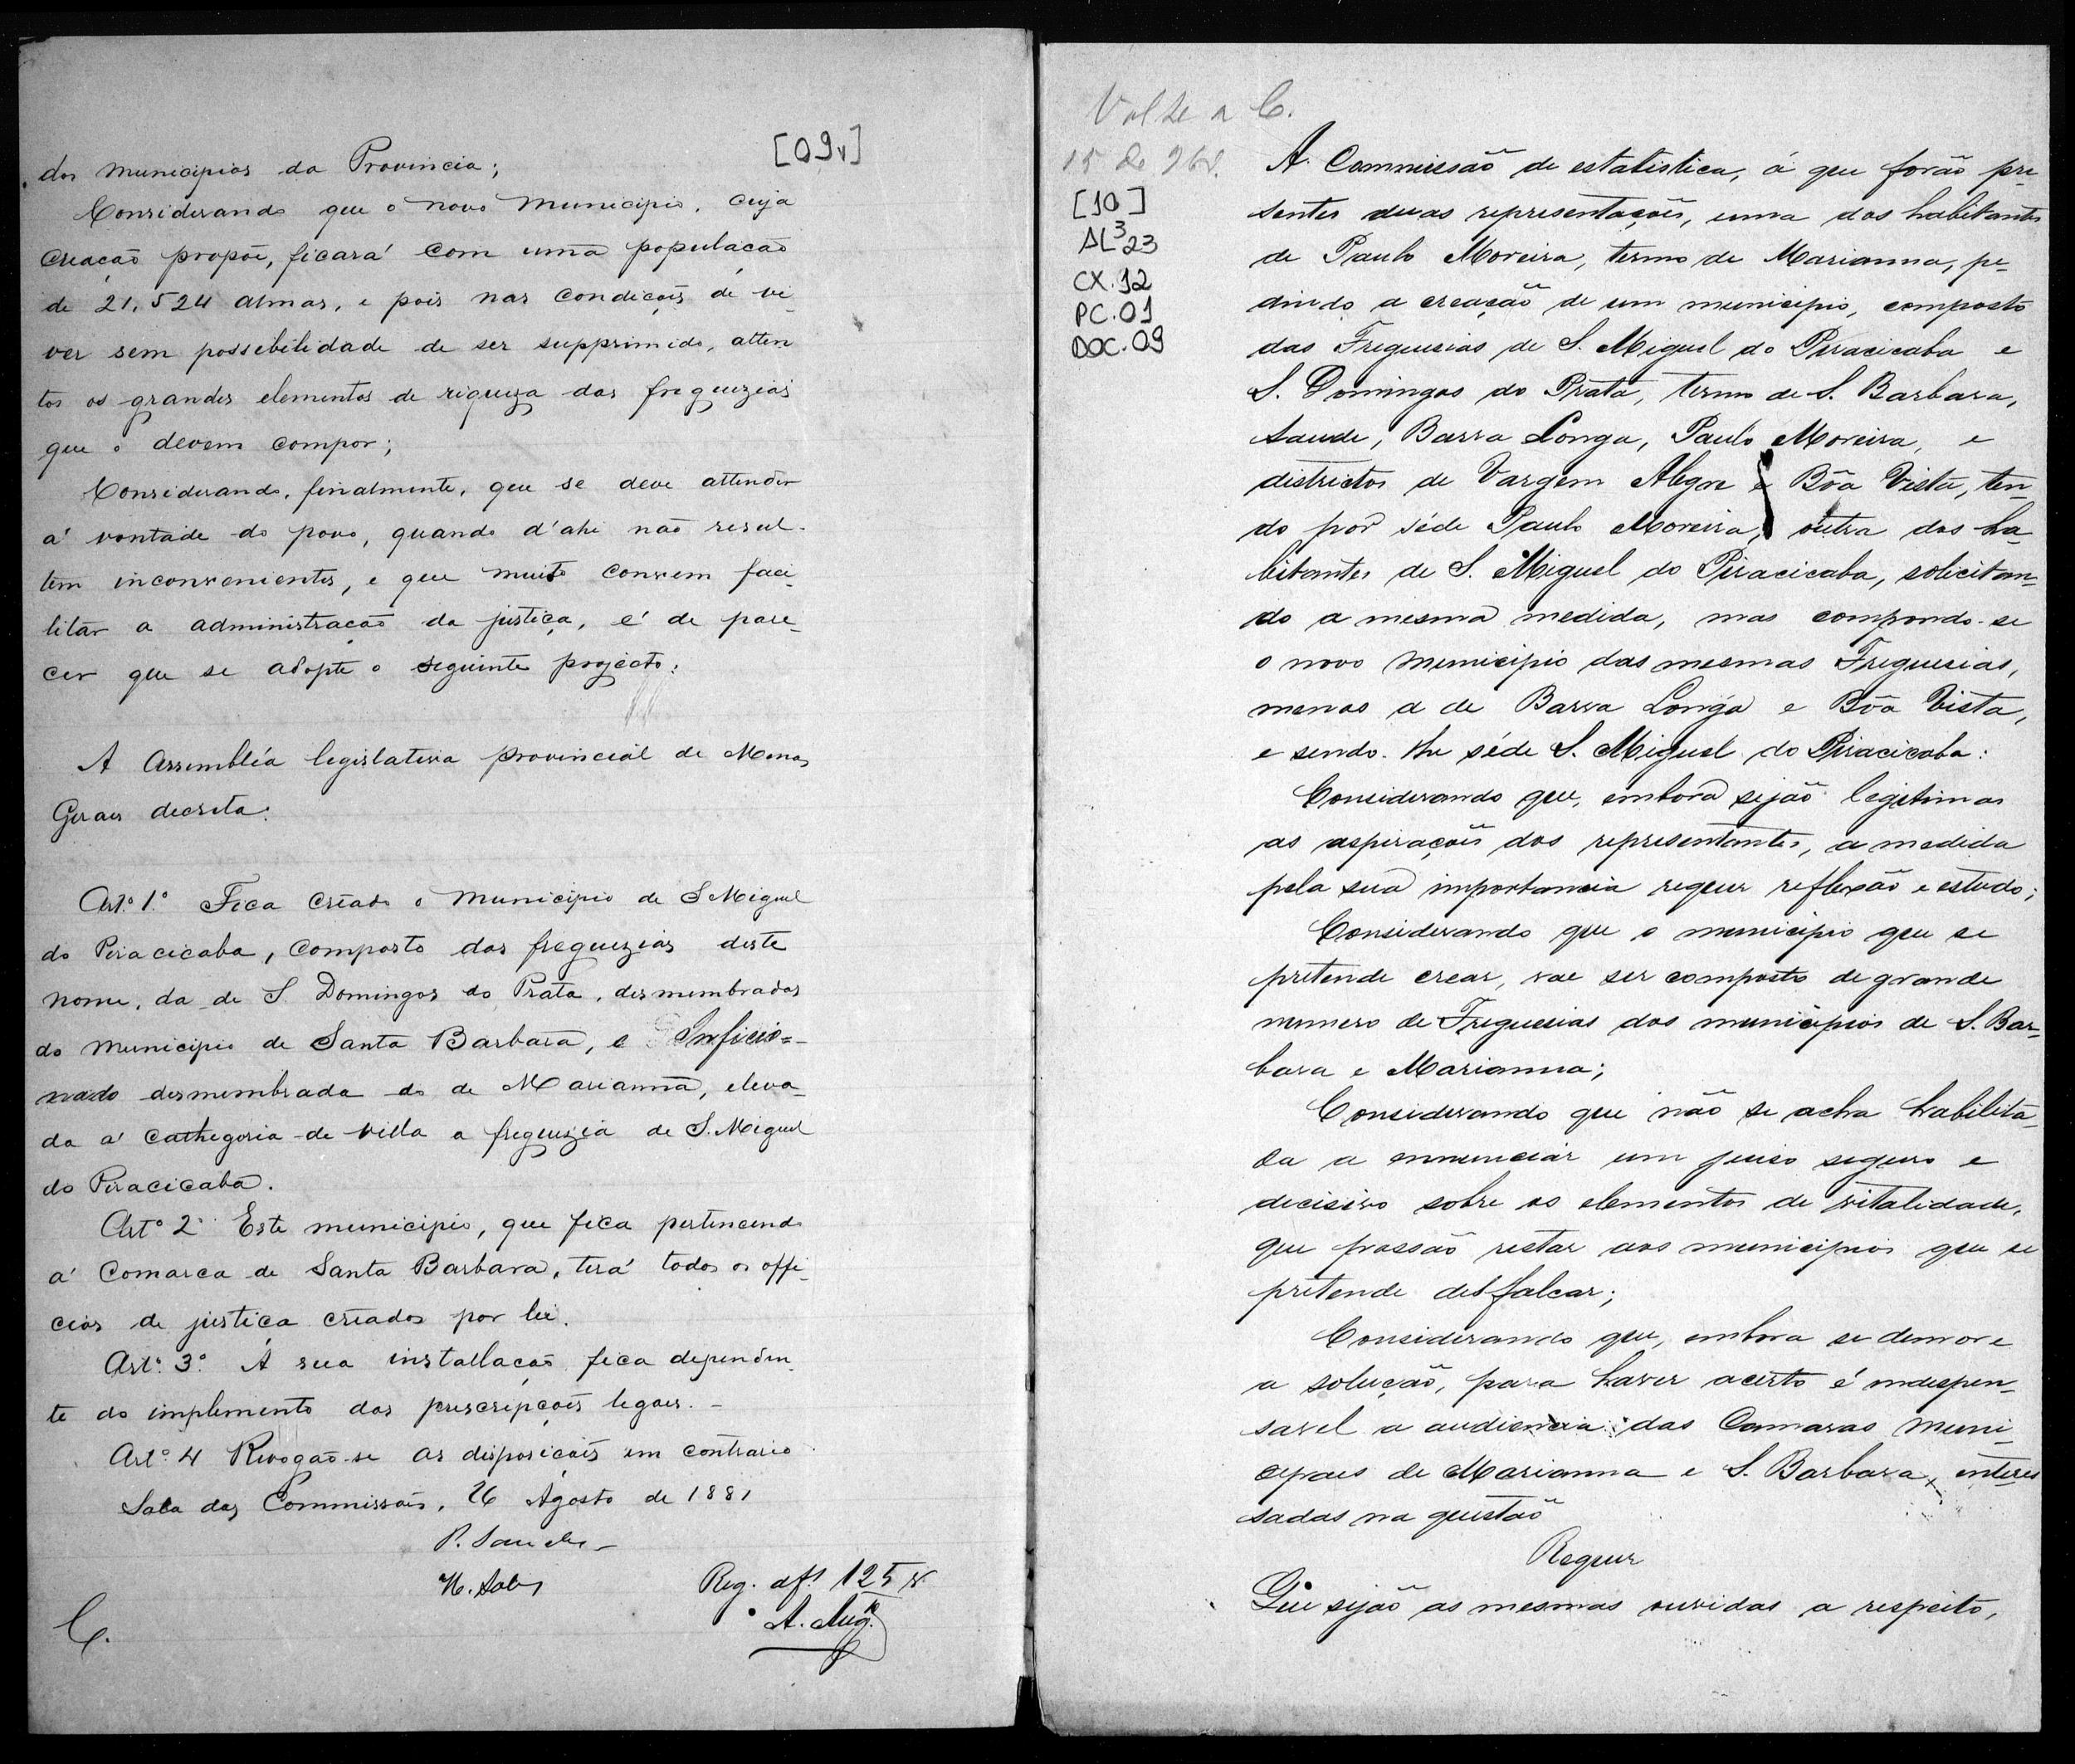 [09v]
dos municipios da Provincia;
Considerando que o novo municipio, cuja
creação propõe, ficará com uma população
de 21,524 almas, e pois nas condições de vi-
ver sem possebilidade de ser supprimido, atten
tos os grandes elementos de riqueza das freguezias
que o devem compor;
Considerando, finalmente, que se deve attender
á vontade do povo, quando d'ahi não resul-
tem inconvenientes, e que muito convem faci-
litar a administração da justiça, é de pare-
cer que se adopte o seguinte projecto:
A Assembléa legislativa provincial de Minas
Geraes decreta:
Art.º 1.º Fica creado o municipio de S Miguel
do Piracicaba, composto das freguezias deste
nome, da de S Domingos do Prata, desmembradas
do municipio de Santa Barbara, e Inficio=
nado desmembrada do de Marianna, eleva-
da á cathegoria de villa a freguezia de S. Miguel
do Piracicaba.
Artº 2º Este municipio, que fica pertencendo
á Comarca de Santa Barbara, terá todos os offi-
cios de justiça creados por lei.
Art.º 3.º A sua installação fica dependen-
te do implemento das prescripções legaes. -
Artº 4 Revogão-se as disposições em contrario
Sala das Commissões, 26 Agosto de 1881
Reg. a f. 125 v.
A. Aug.
C.
Volte a C.
[10]
AL³23
CX.12
PC.01
DOC.09
A Commissão de estatistica, á que forão pre
sentes duas representações, uma dos habitantes
de Paulo Moreira, termo de Marianna, pe-
dindo a creação de um municipio, composto
das Freguesias de S. Miguel do Piracicaba e
S. Domingos do Prata, termo de S. Barbara,
Saude, Barra Longa, Paulo Moreira, e
districtos de Vargem Alegre e Bôa Vista, ten-
do por séde Paulo Moreira, outra dos ha-
bitantes de S. Miguel do Piracicaba, solicitan-
do a mesma medida, mas compondo-se
o novo municipio das mesmas Freguesias,
menos a de Barra Longa e Bôa Vista,
e sendo-lhe séde S. Miguel do Piracicaba:
Considerando que, embora sejão legitimas
as aspirações dos representantes, a medida
pela sua importancia requer reflexão e estudo;
Considerando que o municipio que se
pretende crear, vae ser composto de grande
numero de Freguesias dos municipios de S. Bar-
bara e Marianna;
Considerando que não se acha habilita-
da a ennunciar um juiso seguro e
decisivo sobre os elementos de vitalidade,
que possão restar aos municipios que se
pretende desfalcar;
Considerando que, embora se demore
a solução, para haver acerto é indispen-
savel a audiencia das Camaras Muni-
cipaes de Marianna e S. Barbara, interes
sadas na questão
Requer
Que sejão as mesmas ouvidas a respeito,